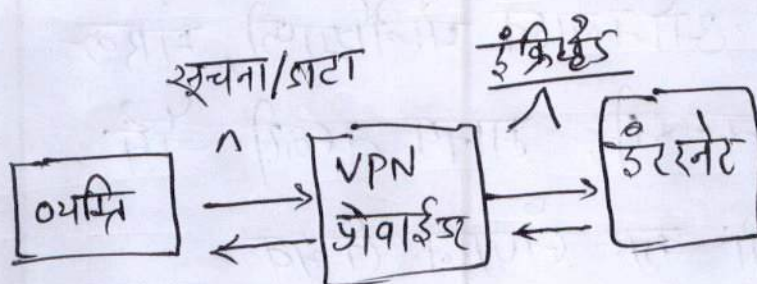 सूचना/डाटा
इंक्रिप्टेड
व्यक्ति
VPN
प्रोवाईडर
इंटरनेट